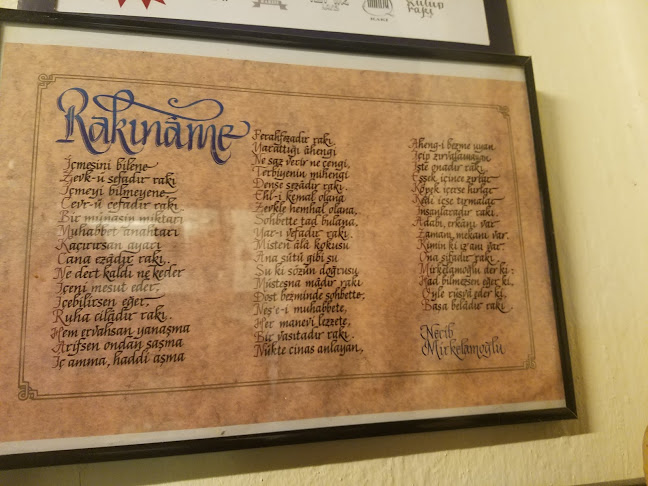 RAKI
Kulüp
rakı
Rakınâme
İçmesini bilene
Zevk-ü sefadır rakı
İçmeyi bilmeyene
Cevr-ü cefadır rakı
Bir münasip miktarı
Muhabbet anahtarı
Kaçırırsan ayarı
Cana ezâdır rakı..
Ne dert kaldı ne keder
İçeni mesut eder,
İçebilirsen eğer
Ruha cilâdır rakı.
Hem ervahsan yanaşma
Ârifsen ondan şaşma
İç amma, haddi aşma
Ferahfezadır rakı.
Yarattığı âhengi
Ne saz verir ne çengi,
Terbiyenin mihengi
Dense sezâdır rakı.
Ehl-i kemal olana
Zevkle hemhal olana,
Sohbette tad bulana,
Yar-ı vefadır rakı.
Misten âlâ kokusu
Ana sütü gibi su
Şu ki sözün doğrusu
Müstesna mâdır rakı
Dost bezminde sohbette,
Neş'e-i muhabbete,
Her manevi lezzete,
Bir vasıtadır rakı.
Nükte cinas anlayan,
Aheng-i bezme uyan
İçip zırvalamayan,
İşte onadır rakı.
Eşşek içince zırlar
Köpek içerse hırlar
Kedi içse tırmalar
İnsanlaradır rakı.
Adabı, erkânı var
Zamanı, mekânı var.
Kimin ki iz'anı var
Ona şifadır rakı.
Mirkelamoğlu der ki:
Had bilmezsen eğer ki,
Öyle rüsva eder ki,
Başa belâdır rakı.
Necib
Mirkelamoğlu